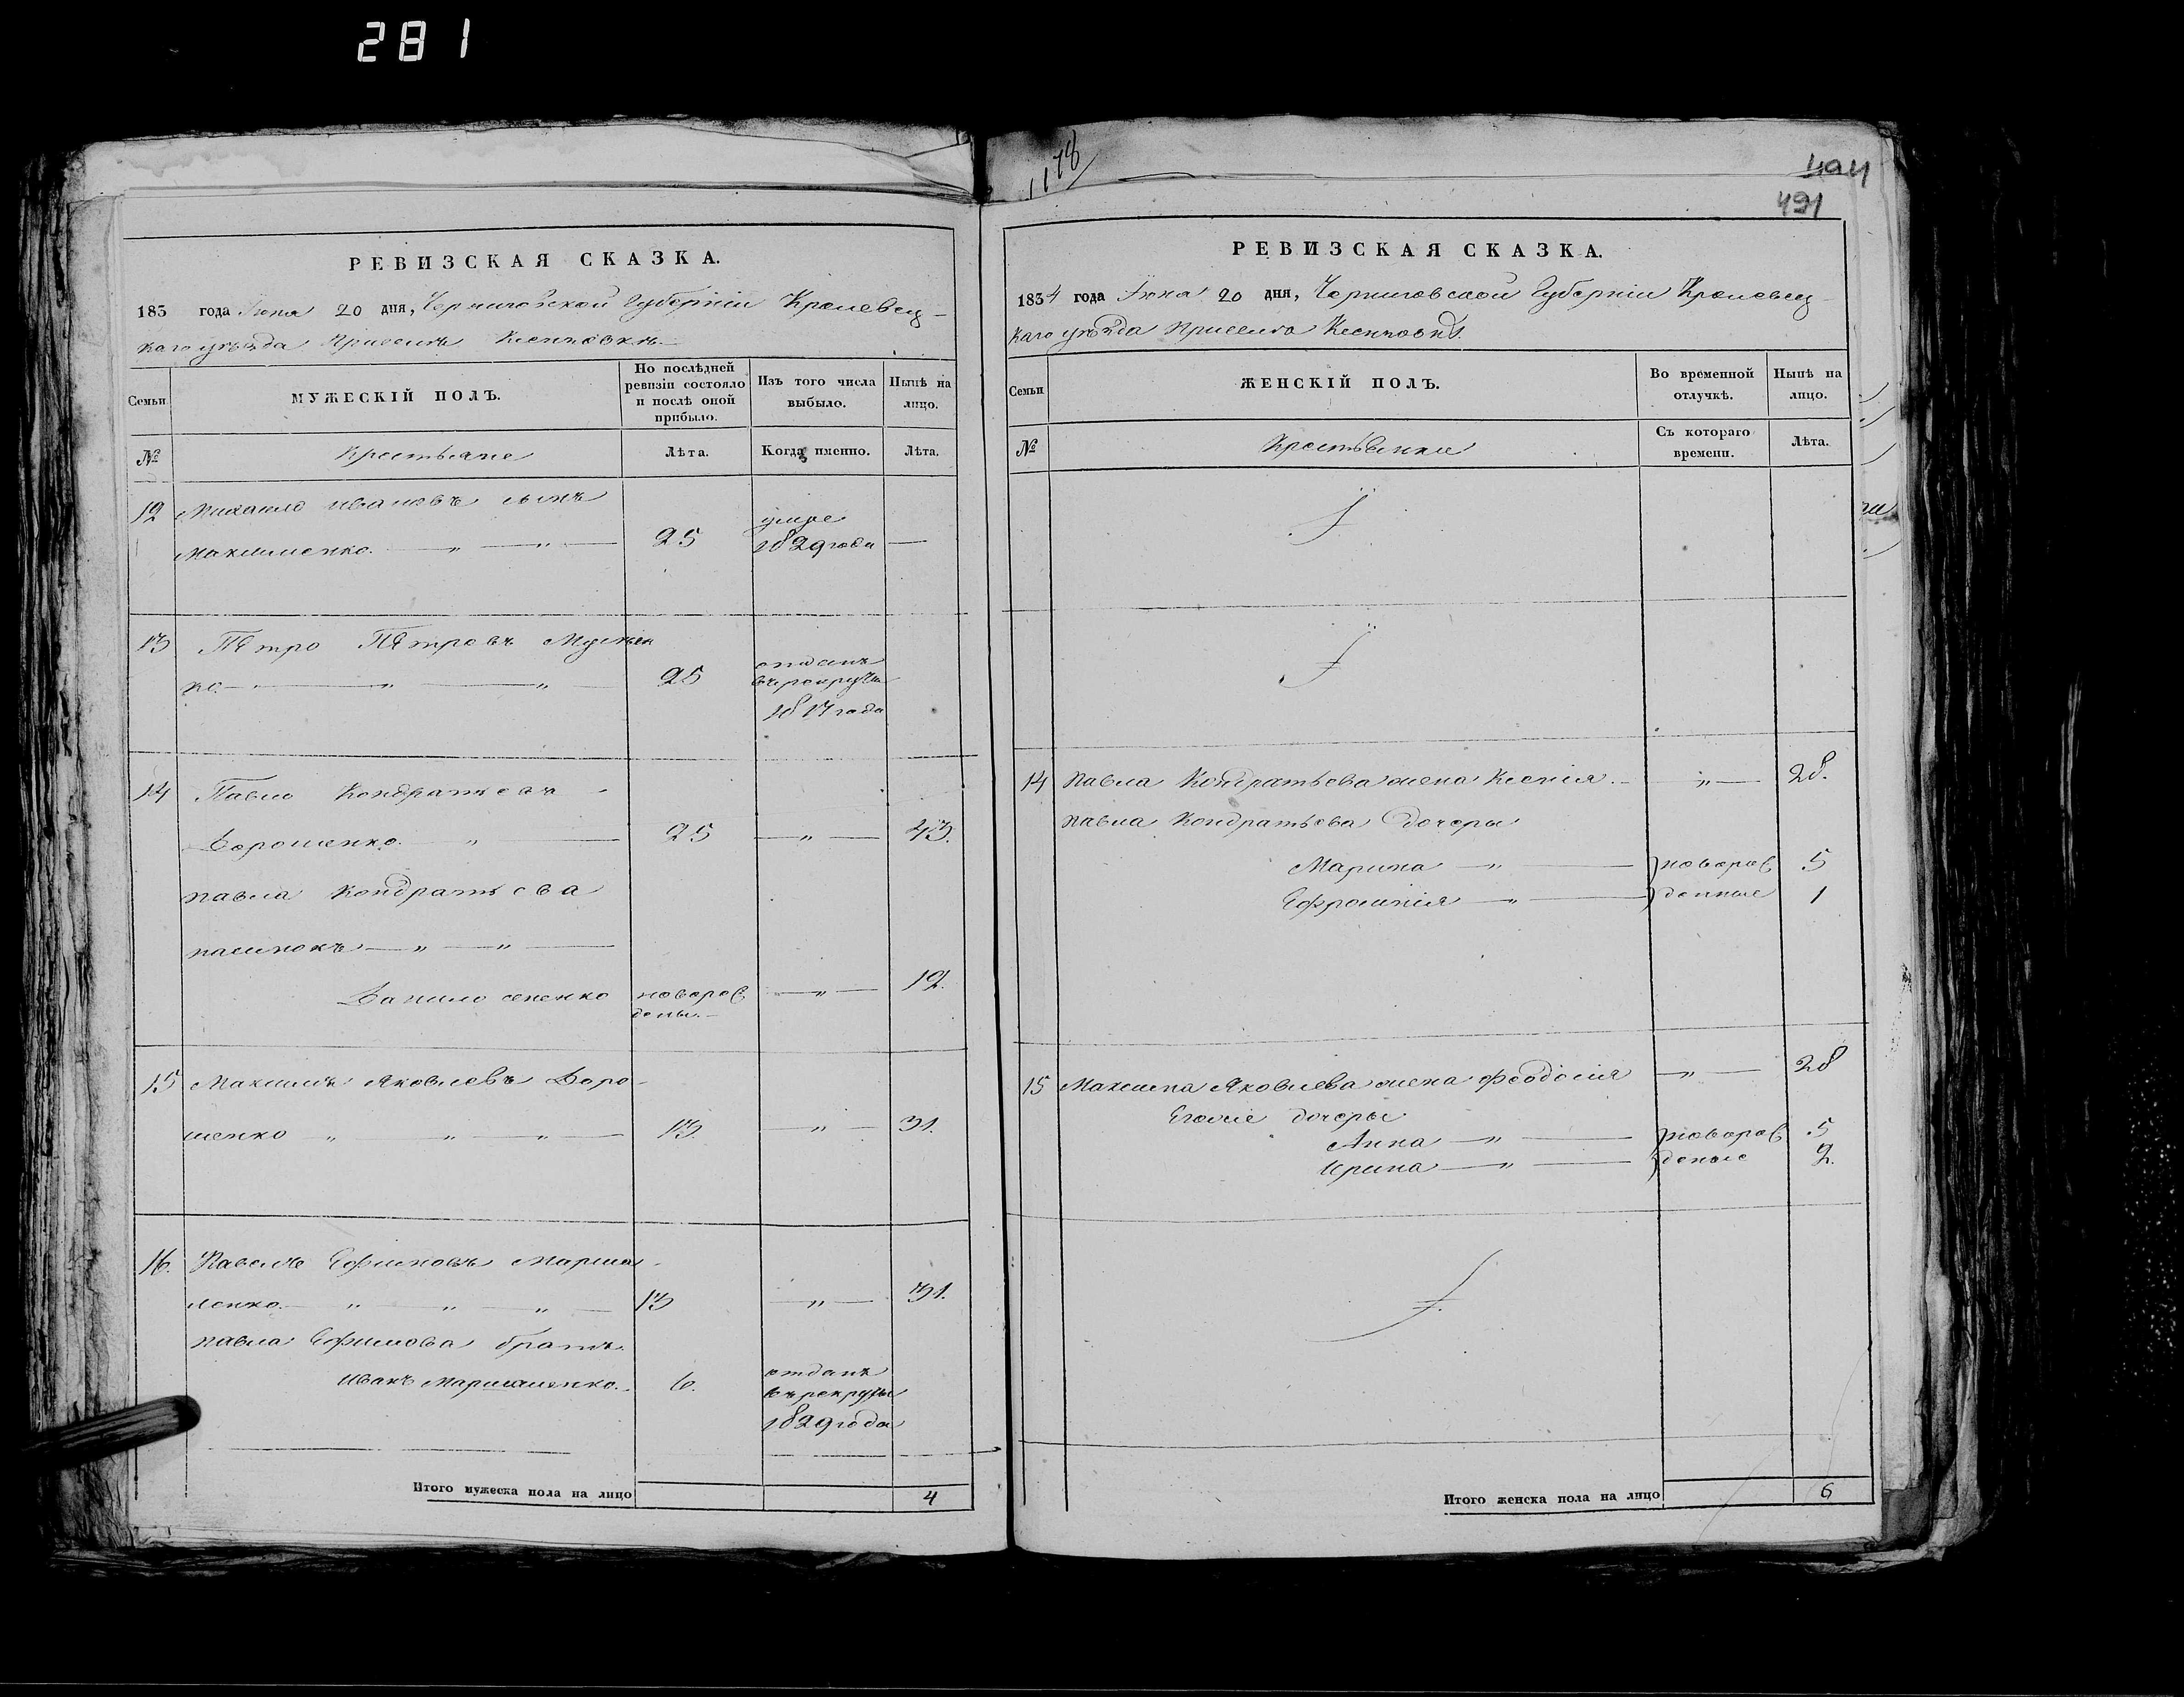 281
РЕВИЗСКАЯ СКАЗКА.
183 года Іюня 20 дня, Черниговской Губерніи Кролевец-
каго уѣзда
МУЖЕСКІЙ ПОЛЪ.
Семьи
По послѣдней ревизіи состояло и послѣ оной прибыло.
Изъ того числа выбыло.
Нынѣ на лицо.
№ Крестьяне Лѣта. Когда именно. Лѣта.
12 Михаило Ивановъ сынъ
Максименко. — „ — „ — 25 умре 1829 года —
13 Пѣтро Пѣтровъ
ко. — „ — „ — 25 отданъ въ рекруты 1817 года
14 Павло Кондратьевъ
Дорошенко. — „ — 25 — „ — 43.
павла Кондратьева
пасинокъ — „ — „ —
Данило новорож
дены. — — „ — 12.
15 Максимъ Яковлевъ Доро-
шенко — „ — „ — „ — 13. — „ — 31.
16. Павелъ Ефимовъ
ленко. — „ — „ — „ — 13 — „ — 31.
павла Ефимова братъ
Иванъ 6. отданъ въ рекруты 1829 года
Итого мужеска пола на лицо 4
1178
494
491
РЕВИЗСКАЯ СКАЗКА.
1834 года Іюня 20 дня, Черниговской Губерніи Кролевец-
каго уѣзда
Семьи
ЖЕНСКІЙ ПОЛЪ.
Во временной отлучкѣ.
Нынѣ на лицо.
№ Крестьянки Съ котораго времени. Лѣта.
14 павла Кондратьева жена Ксенія. — „ — 28.
павла Кондратьева дочеры
Марина — „ — новорож 5
Ефросинія — „ — денные 1
15 Максима Яковлева жена Феодосія — „ — 28
Егоже дочеры
Анна — „ — новорож 5
Ирина — „ — деные 2.
Итого женска пола на лицо 6